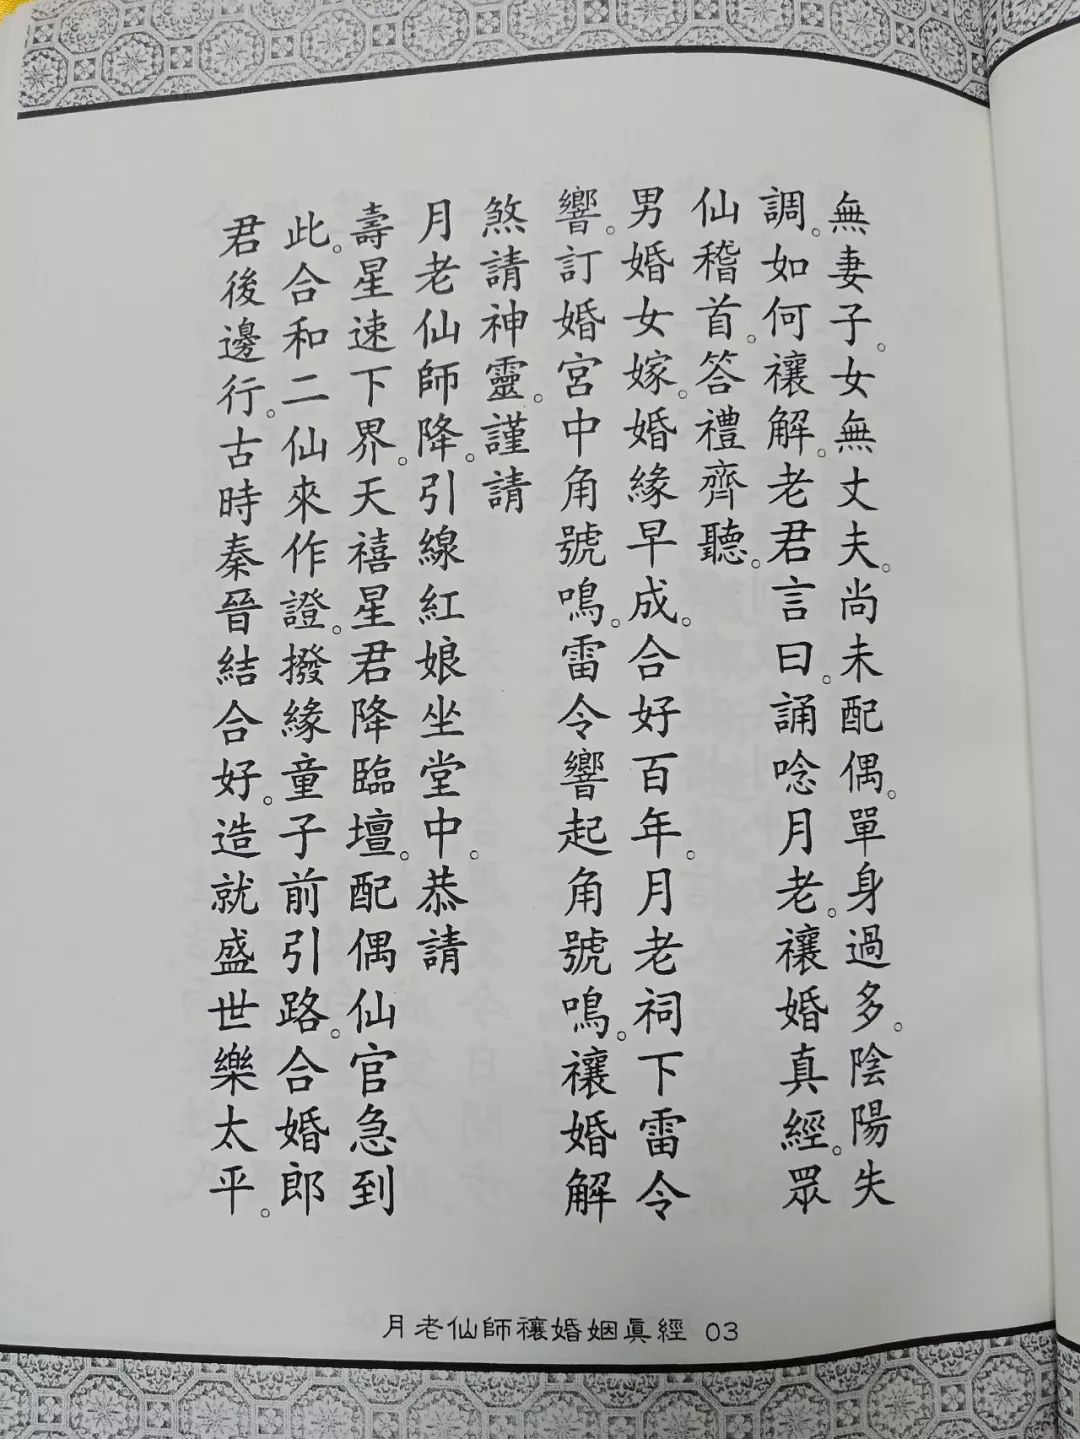 無妻子。女無丈夫。尚未配偶。單身過多。陰陽失
調。如何禳解。老君言曰。誦唸月老。禳婚真經。眾
仙稽首。答禮齊聽。
男婚女嫁。婚緣早成。合好百年。月老祠下雷令
響。訂婚宮中角號鳴。雷令響起角號鳴。禳婚解
煞請神靈。謹請
月老仙師降。引線紅娘坐堂中。恭請
壽星速下界。天禧星君降臨壇。配偶仙官急到
此。合和二仙來作證。撥緣童子前引路。合婚郎
君後邊行。古時秦晉結合好。造就盛世樂太平。
月老仙師禳婚姻眞經 03